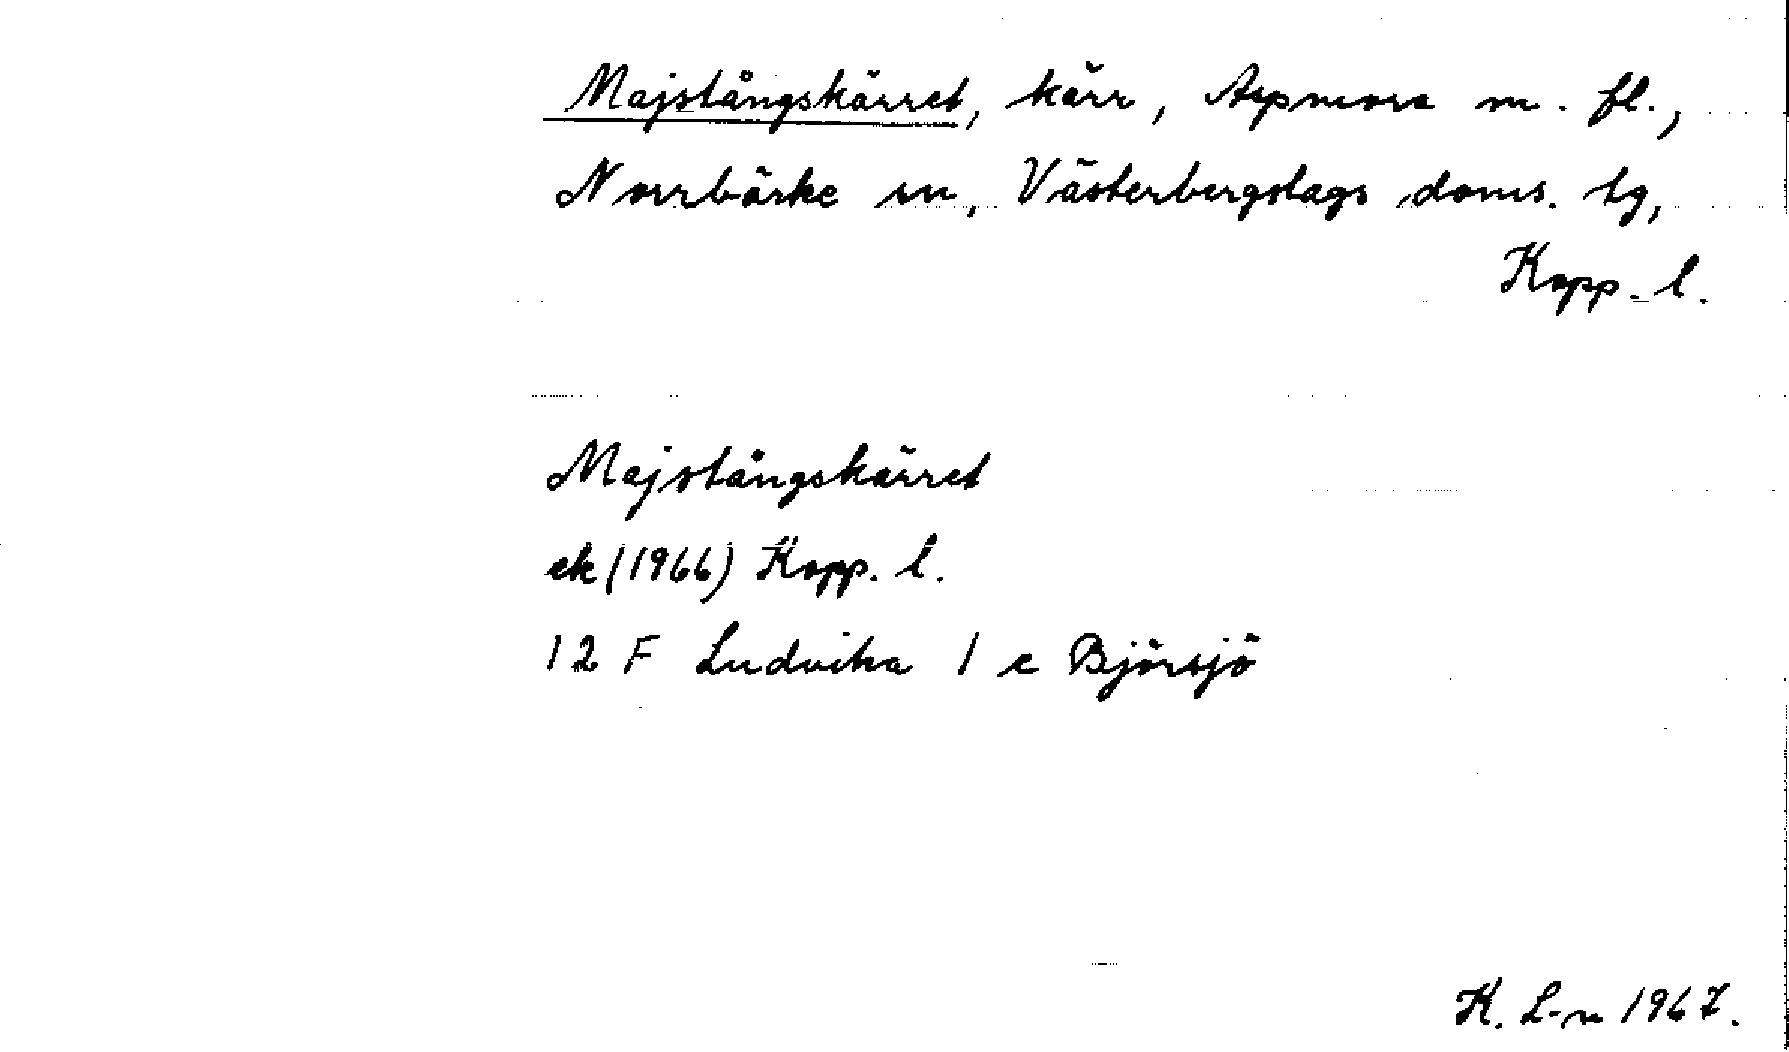 Majstångskärret, kärr, Aspmora m. fl.,
Norrbärke sn, Västerbergslags doms. tg,
Kopp. l.
Majstångskärret
ek (1966) Kopp. l.
12 F Ludvika 1 e Björsjö
K. L-n 1967.